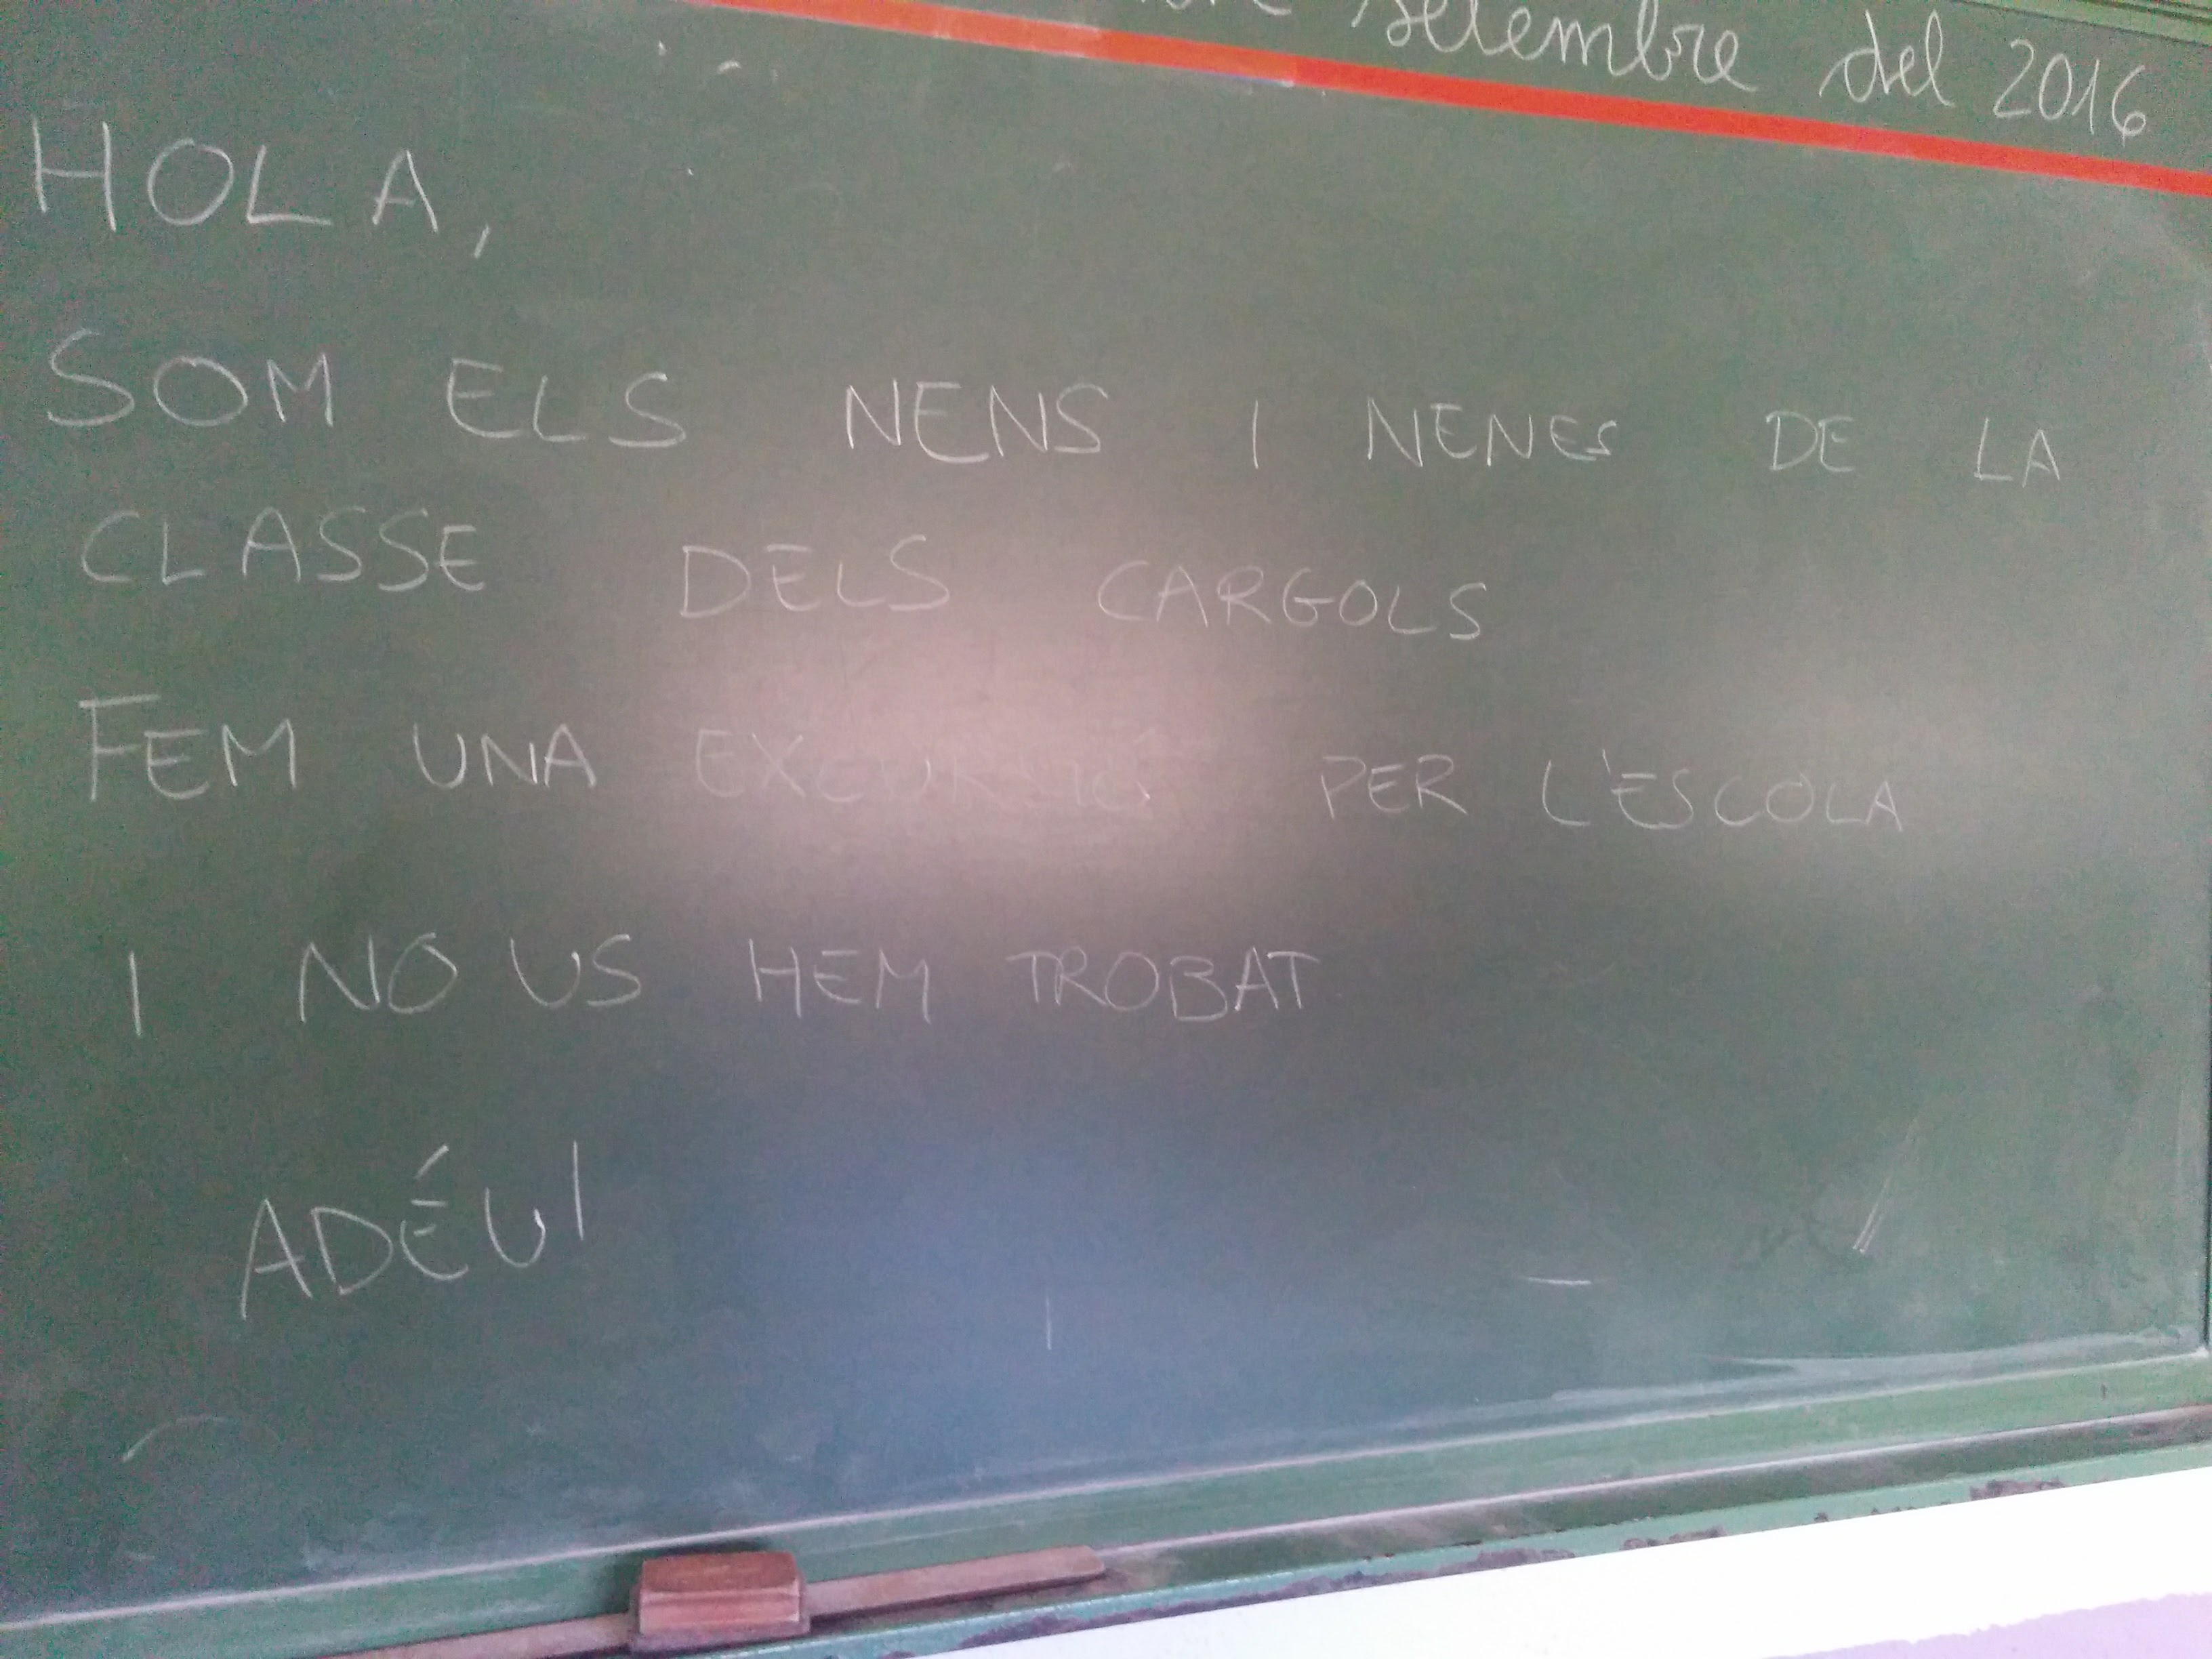 setembre del 2016
HOLA,
SOM ELS NENS I NENES DE LA
CLASSE DELS CARGOLS
FEM UNA EXCURSIÓ PER L'ESCOLA
I NO US HEM TROBAT
ADÉU!